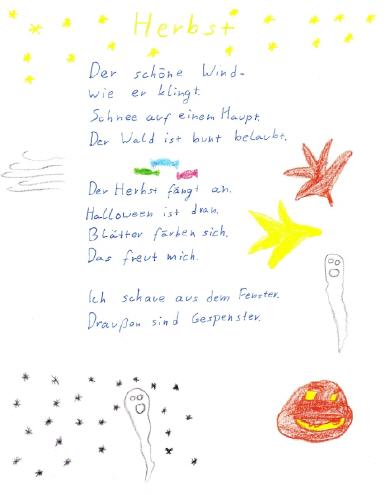 Herbst
Der schöne Wind-
wie er klingt.
Schnee auf einem Haupt.
Der Wald ist bunt belaubt.
Der Herbst fängt an.
Halloween ist dran.
Blätter färben sich.
Das freut mich.
Ich schaue aus dem Fenster.
Draußon sind Gespenster.